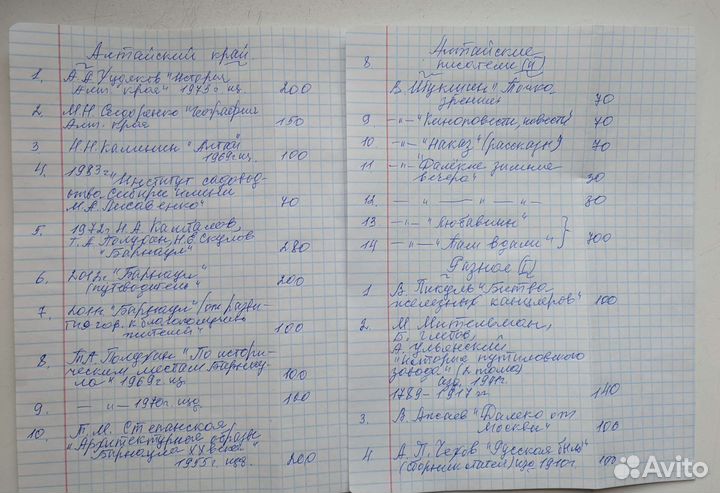 Алтайский край.
1. А.А. Худяков "История
Алт. края" 1973г изд. 200
2. М.Н. Сидоренко "География
Алт. края 150
3 Н.Н. Калинин "Алтай"
1969г изд. 100
4. 1983г "Институт садовод-
ства Сибири имени
М.А. Лисавенко" 70
5. 1972г Н.А. Камбалов,
Т.А. Полухин, Н.С. Скулов
"Барнаул" 280
6. 2012г "Барнаул"
(путеводитель) 200
7. 2011г "Барнаул" (от разви-
тия гор. к благополучию
жителей" 100
8. Т.А. Полухин "По истори-
ческим местам Барнау-
ла" 1969г изд. 100
9. — " — 1970г. изд 100
10. Т.М. Степанская
"Архитектурные образы
Барнаула XX века"
1995г изд. 200
8. Алтайские
писатели (II)
В. Шукшин "Точка
зрения" 70
9 — " — "Киноповести, повести" 70
10 — " — "Наказ" (рассказы) 70
11 — " — "Далёкие зимние
вечера" 30
12 — " — — " — — " — 30
13 — " — "Любавины" }
14 — " — "Там вдали" } 700
Разное (I)
1 В. Пикуль "Битва
железных канцлеров" 100
2. М. Мительман,
Б. Глебов,
А. Ульянский
"История Путиловского
завода" (2 тома)
изд.
1789-1917гг 140
3. В. Ажаев "Далеко от
Москвы" 100
4 А.П. Чехов "Русская быль"
(сборник статей) изд 1910г 100
Avito